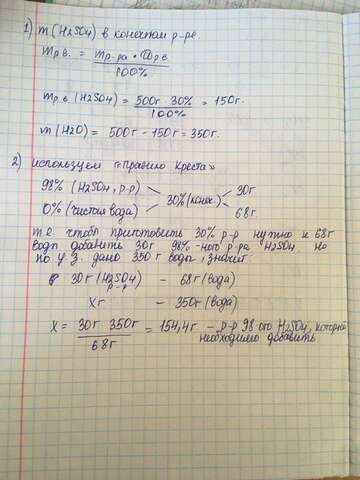 1) m(H2SO4) в конечном р-ре.
mр.в. = mр-ра · ωр.в
100%
mр.в (H2SO4) = 500г · 30% = 150г.
100%
m(H2O) = 500г - 150г = 350г.
2) используем «Правило Креста»
98% (H2SO4, р-р) 30г
30% (конеч.)
0% (чистая вода) 68г
т.е. чтобы приготовить 30% р-р нужно к 68г
воды добавить 30г 98%-ного р-ра H2SO4 но
по у.з. дано 350г воды, значит:
30г (H2SO4) - 68г (вода)
р-р
xг - 350г (вода)
x = 30г 350г = 154,4г - р-р 98 ого H2SO4, которой
68г
необходимо добавить